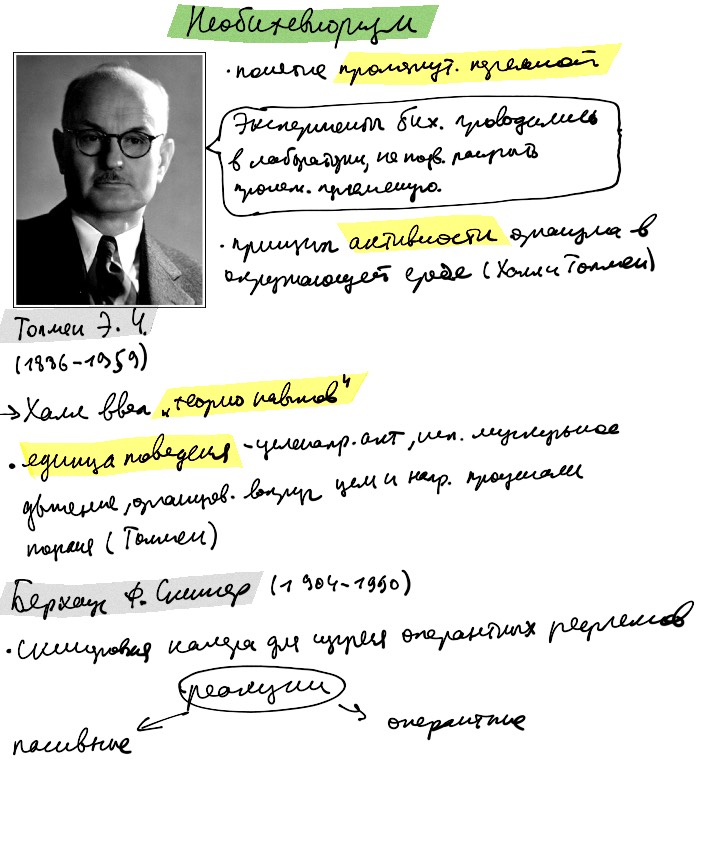 Необихевиоризм
· понятие промежут. переменной
Эксперименты бих. проводились
в лаборатории, не позв. раскрыть
пром. переменную.
· принцип активности организма в
окружающей среде (Халл и Толмен)
Толмен Э. Ч.
(1886-1959)
→ Халл ввел „теорию навыков"
· единица поведения - целенапр. акт, исп. мускульное
движение, организов. вокруг цели и напр. процессами
позная (Толмен)
Берхаус Ф. Скиннер (1904-1990)
· Скиннеровая камера для изучения оперантных рефлексов
реакции
пассивные
оперантные